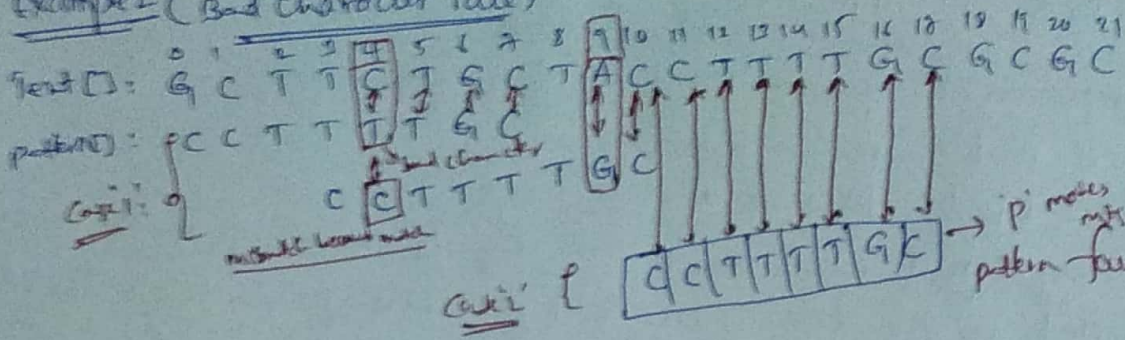 Example 2 (Bad Character rule)
0 1 2 3 4 5 6 7 8 9 10 11 12 13 14 15 16 17 18 19 20 21
Text[]: G C T T C T G C T A C C T T T T G C G C G C
pattern[]: C C T T T T G C
bad character
Case i: C C T T T T G C
mismatch become match
Case ii { C C T T T T G C → 'P' moves
pattern